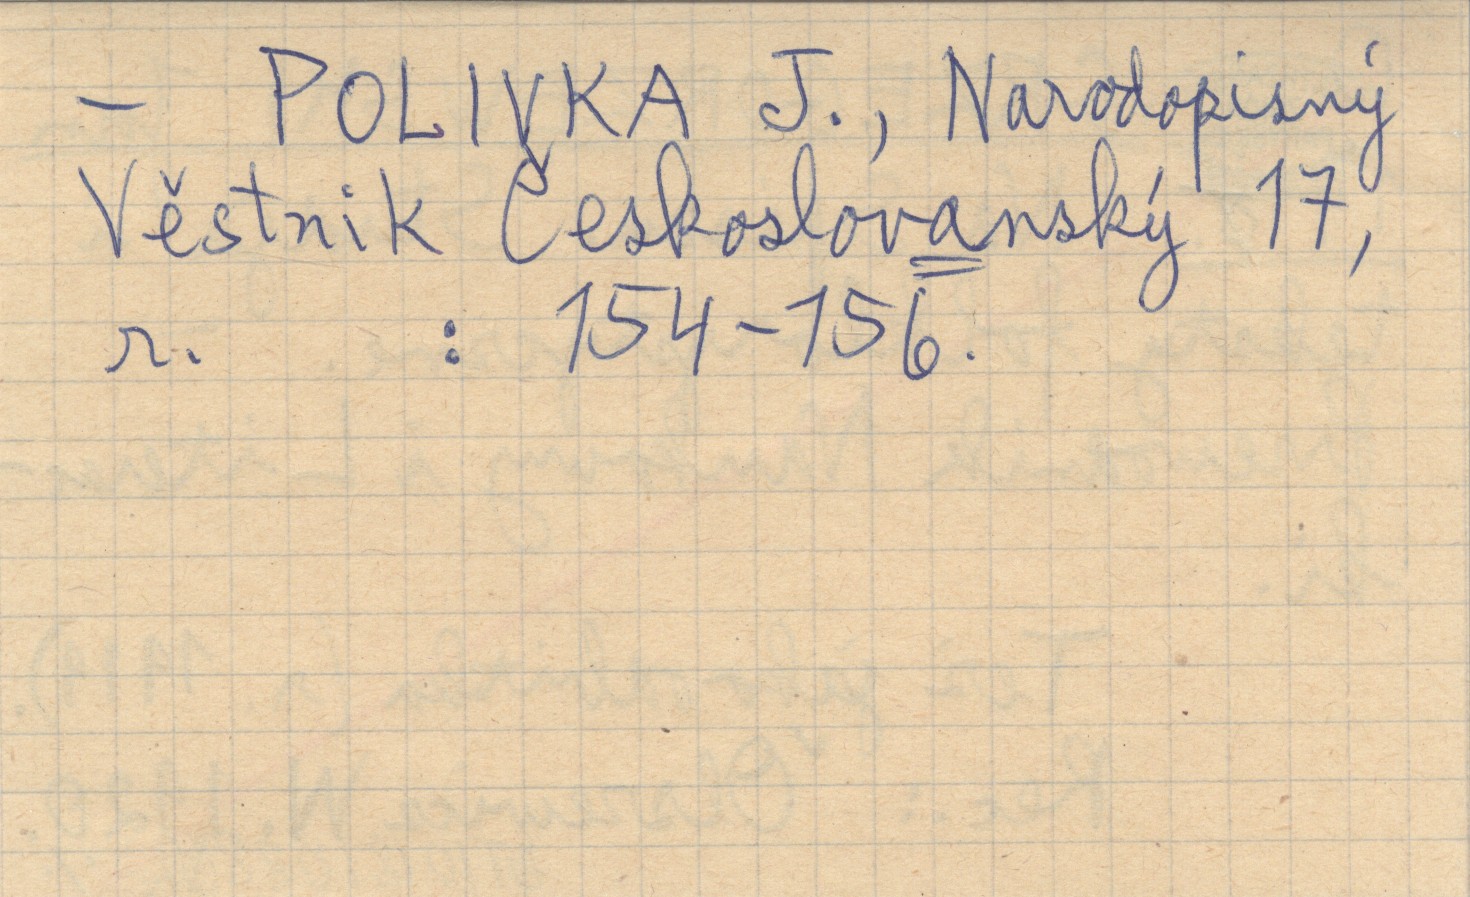 – POLIVKA J., Narodopisný
Věstnik Českoslovanský 17,
r. : 154-156.